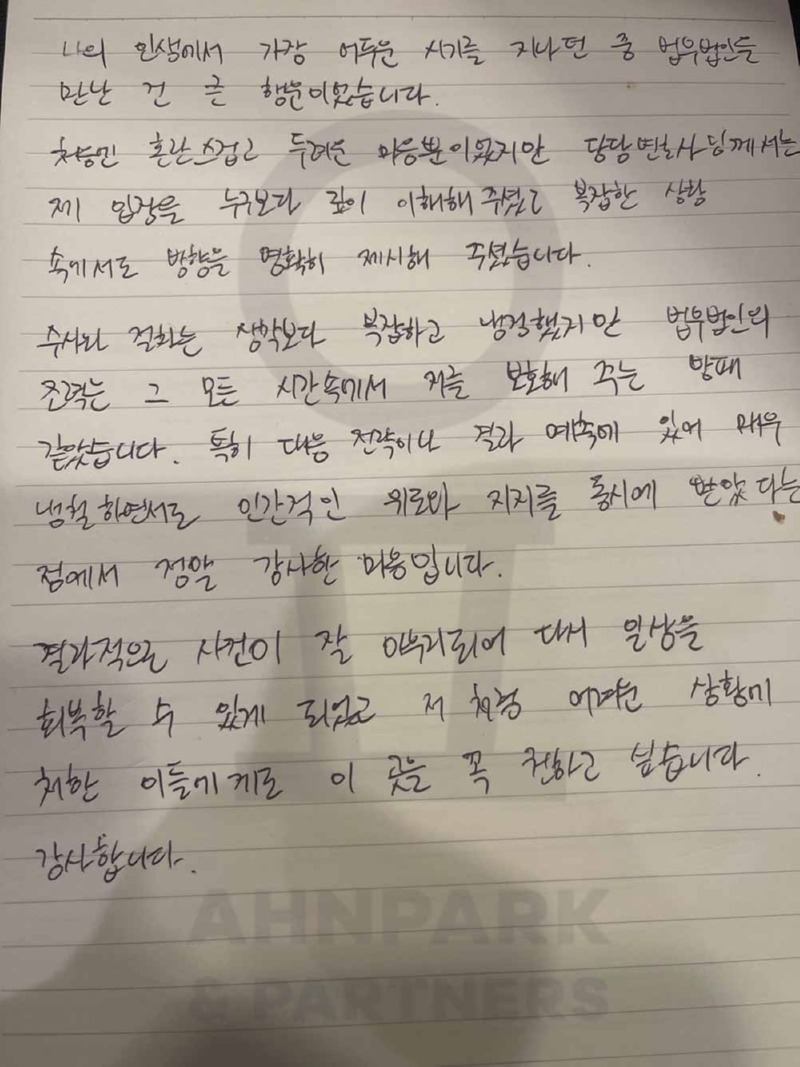 나의 인생에서 가장 어두운 시기를 지나던 중 법무법인을
만난 건 큰 행운이었습니다.
처음엔 혼란스럽고 두려운 마음뿐이었지만 담당변호사님께서는
제 입장을 누구보다 깊이 이해해 주셨고 복잡한 상황
속에서도 방향을 명확히 제시해 주셨습니다.
수사와 절차는 생각보다 복잡하고 냉정했지만 법무법인의
조력는 그 모든 시간속에서 저를 보호해 주는 방패
같았습니다. 특히 대응 전략이나 결과 예측에 있어 매우
냉철하면서도 인간적인 위로와 지지를 동시에 받았다는
점에서 정말 감사한 마음입니다.
결과적으로 사건이 잘 마무리되어 다시 일상을
회복할 수 있게 되었고 저처럼 어려운 상황에
처한 이들에게도 이 곳을 꼭 전하고 싶습니다.
감사합니다.
AHNPARK
& PARTNERS